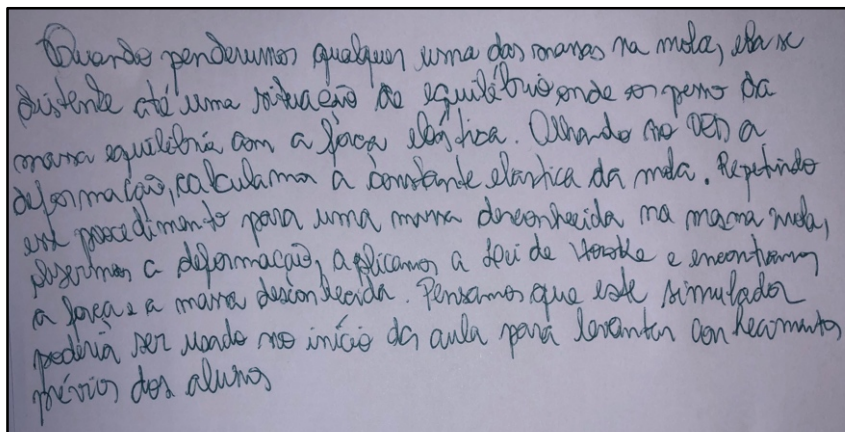 Quando penderumos qualquer uma das massas na mola, ela se
distende até uma situação de equilíbrio onde o peso da
massa equilibria com a força elástica. Olhando no DED a
deformação, calculamos a constante elástica da mola. Repetindo
esse procedimento para uma massa desconhecida na mesma mola,
a deformação, aplicamos a Lei de Hooke e encontramos
a força e a massa desconhecida. Pensamos que este simulador
poderia ser usado no início da aula para levantar conhecimentos
prévios dos alunos